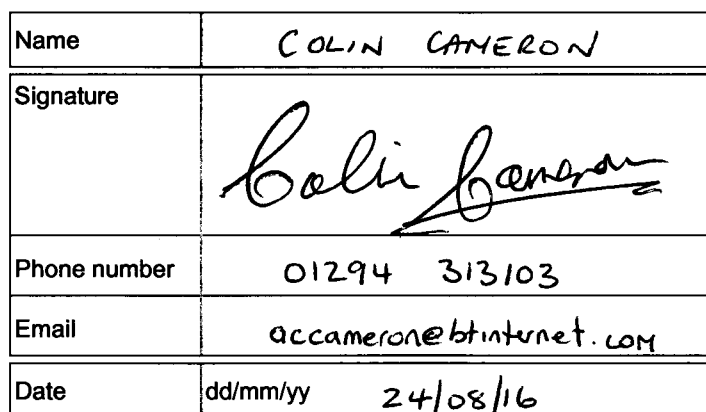 Name COLIN CAMERON
Signature Colin Cameron
Phone number 01294 313103
Email accameron@btinternet.com
Date dd/mm/yy 24/08/16